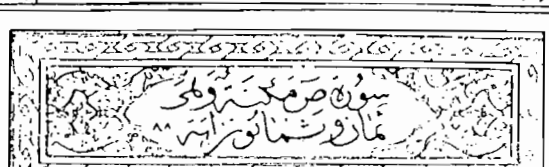 سورة ص مكية وهى
ثمان وثمانون اية ٨٨